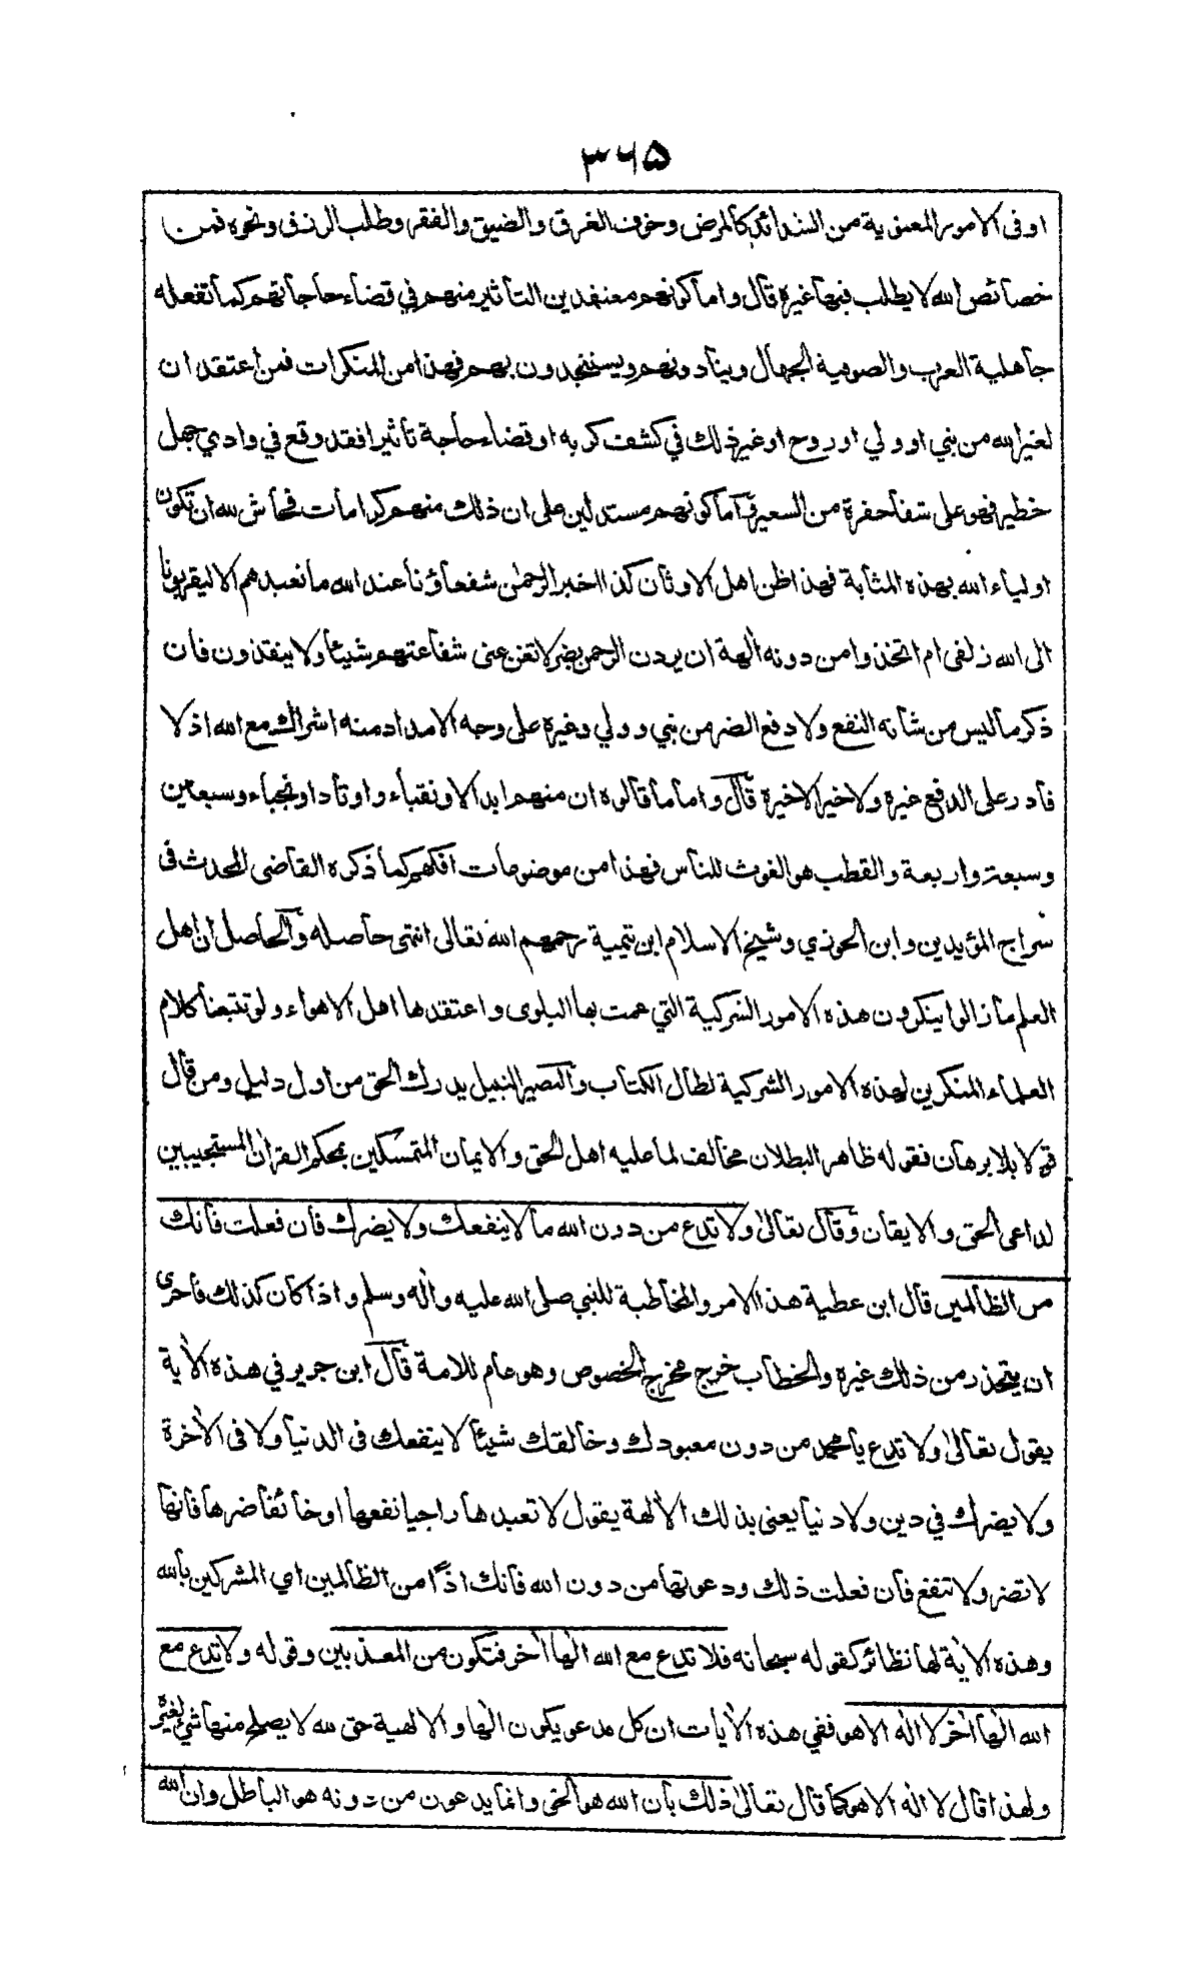 ۳۶۵
او فى الامور المعنوية من الشدائد كالمرض وخوف الغرق والضيق والفقر وطلب الرزق ونحوه فمن
خصائص الله لا يطلب فيها غيره قال واما كونهم معتقدين التأثير منهم في قضاء حاجاتهم كما تفعله
جاهلية العرب والصوفية الجهال وينادونهم ويستنجدون بهم فهذا من المنكرات فمن اعتقد ان
لغير الله من نبي او ولي او روح او غير ذلك في كشف كربه او قضاء حاجة تأثيرا فقد وقع في وادي جهل
خطير فهو على شفا حفرة من السعير واما كونهم مستدلين على ان ذلك منهم كرامات فحاش لله ان تكون
اولياء الله بهذه المثابة فهذا ظن اهل الاوثان كذا اخبر الرحمٰن شفعاؤنا عند الله ما نعبدهم الا ليقربونا
الى الله زلفى ام اتخذوا من دونه اٰلهة ان يردن الرحمن بضر لا تغن عنى شفاعتهم شيئا ولا ينقذون فان
ذكر ما ليس من شأنه النفع ولا دفع الضر من نبي وولي وغيره على وجه الامداد منه اشراك مع الله اذ لا
قادر على الدفع غيره ولا خير الا خيره قال واما ما قالوه ان منهم ابدالا ونقباء واوتادا ونجباء وسبعين
وسبعة واربعة والقطب هو الغوث للناس فهذا من موضوعات افكهم كما ذكره القاضى المحدث فى
سراج المؤيدين وابن الجوزي وشيخ الاسلام ابن تيمية رحمهم الله تعالى انتهى حاصله والحاصل ان اهل
العلم ما زالوا ينكرون هذه الامور الشركية التي عمت بها البلوى واعتقدها اهل الاهواء ولو تتبعنا كلام
العلماء المنكرين لهذه الامور الشركية لطال الكتاب والبصير النبيل يدرك الحق من اول دليل ومن قال
قولا بلا برهان فقوله ظاهر البطلان مخالف لما عليه اهل الحق والايمان المتمسكين بمحكم القراٰن المستجيبين
لداعى الحق والايقان وقال تعالىٰ ولا تدع من دون الله ما لا ينفعك ولا يضرك فان فعلت فانك
من الظالمين قال ابن عطية هذا الامر والمخاطبة للنبي صلى الله عليه واٰله وسلم واذا كان كذلك فاحرى
ان يتحذر من ذلك غيره والخطاب خرج مخرج الخصوص وهو عام للامة قال ابن جرير في هذه الاٰية
يقول تعالىٰ ولا تدع يا محمد من دون معبودك وخالقك شيئا لا ينفعك فى الدنيا ولا فى الاٰخرة
ولا يضرك في دين ولا دنيا يعنى بذلك الاٰلهة يقول لا تعبدها راجيا نفعها او خائفا ضرها فانها
لا تضر ولا تنفع فان فعلت ذلك ودعوتها من دون الله فانك اذًا من الظالمين اي المشركين بالله
وهذه الاٰية لها نظائر كقوله سبحانه فلا تدع مع الله الٰها اٰخر فتكون من المعذبين وقوله ولا تدع مع
الله الٰها اٰخر لا اله الا هو ففي هذه الاٰيات ان كل مدعو يكون الٰها والالهية حق لله لا يصلح منها شئ لغيره
ولهذا قال لا اله الا هو كما قال تعالىٰ ذلك بان الله هو الحق وانما يدعون من دونه هو الباطل وان الله